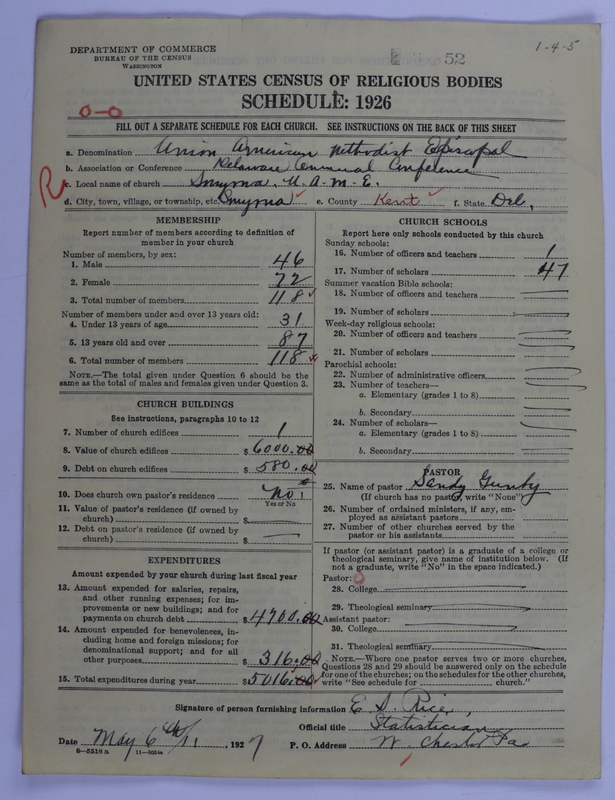 DEPARTMENT OF COMMERCE
BUREAU OF THE CENSUS
WASHINGTON
52
1-4-5
UNITED STATES CENSUS OF RELIGIOUS BODIES
SCHEDULE: 1926
0-0
FILL OUT A SEPARATE SCHEDULE FOR EACH CHURCH. SEE INSTRUCTIONS ON THE BACK OF THIS SHEET
R
a. Denomination Union American Methodist Episcopal
b. Association or Conference Delaware Annual Conference
c. Local name of church Smyrna, U.A.M.E.
d. City, town, village, or township, etc. Smyrna e. County Kent f. State Del,
MEMBERSHIP
Report number of members according to definition of
member in your church
Number of members, by sex:
1. Male 46
2. Female 72
3. Total number of members 118
Number of members under and over 13 years old:
4. Under 13 years of age 31
5. 13 years old and over 87
6. Total number of members 118
NOTE.—The total given under Question 6 should be the
same as the total of males and females given under Question 3.
CHURCH BUILDINGS
See instructions, paragraphs 10 to 12
7. Number of church edifices 1
8. Value of church edifices $6000.00
9. Debt on church edifices $580.00
10. Does church own pastor's residence No
Yes or No
11. Value of pastor's residence (if owned by
church) $
12. Debt on pastor's residence (if owned by
church) $
EXPENDITURES
Amount expended by your church during last fiscal year
13. Amount expended for salaries, repairs,
and other running expenses; for im-
provements or new buildings; and for
payments on church debt $4700.00
14. Amount expended for benevolences, in-
cluding home and foreign missions; for
denominational support; and for all
other purposes $316.00
15. Total expenditures during year $5016.00
CHURCH SCHOOLS
Report here only schools conducted by this church
Sunday schools:
16. Number of officers and teachers 1
17. Number of scholars 47
Summer vacation Bible schools:
18. Number of officers and teachers
19. Number of scholars
Week-day religious schools:
20. Number of officers and teachers
21. Number of scholars
Parochial schools:
22. Number of administrative officers
23. Number of teachers—
a. Elementary (grades 1 to 8)
b. Secondary
24. Number of scholars—
a. Elementary (grades 1 to 8)
b. Secondary
PASTOR
25. Name of pastor Sandy Gunby
(If church has no pastor, write "None")
26. Number of ordained ministers, if any, em-
ployed as assistant pastors
27. Number of other churches served by the
pastor or his assistants
If pastor (or assistant pastor) is a graduate of a college or
theological seminary, give name of institution below. (If
not a graduate, write "No" in the space indicated.)
Pastor: 0
28. College
29. Theological seminary
Assistant pastor:
30. College
31. Theological seminary
NOTE.—Where one pastor serves two or more churches,
Questions 28 and 29 should be answered only on the schedule
for one of the churches; on the schedules for the other churches,
write "See schedule for church."
Signature of person furnishing information E. S. Rice,
Official title Statistician
Date May 6th, 1927 P. O. Address W. Chester Pa
8—5518 a